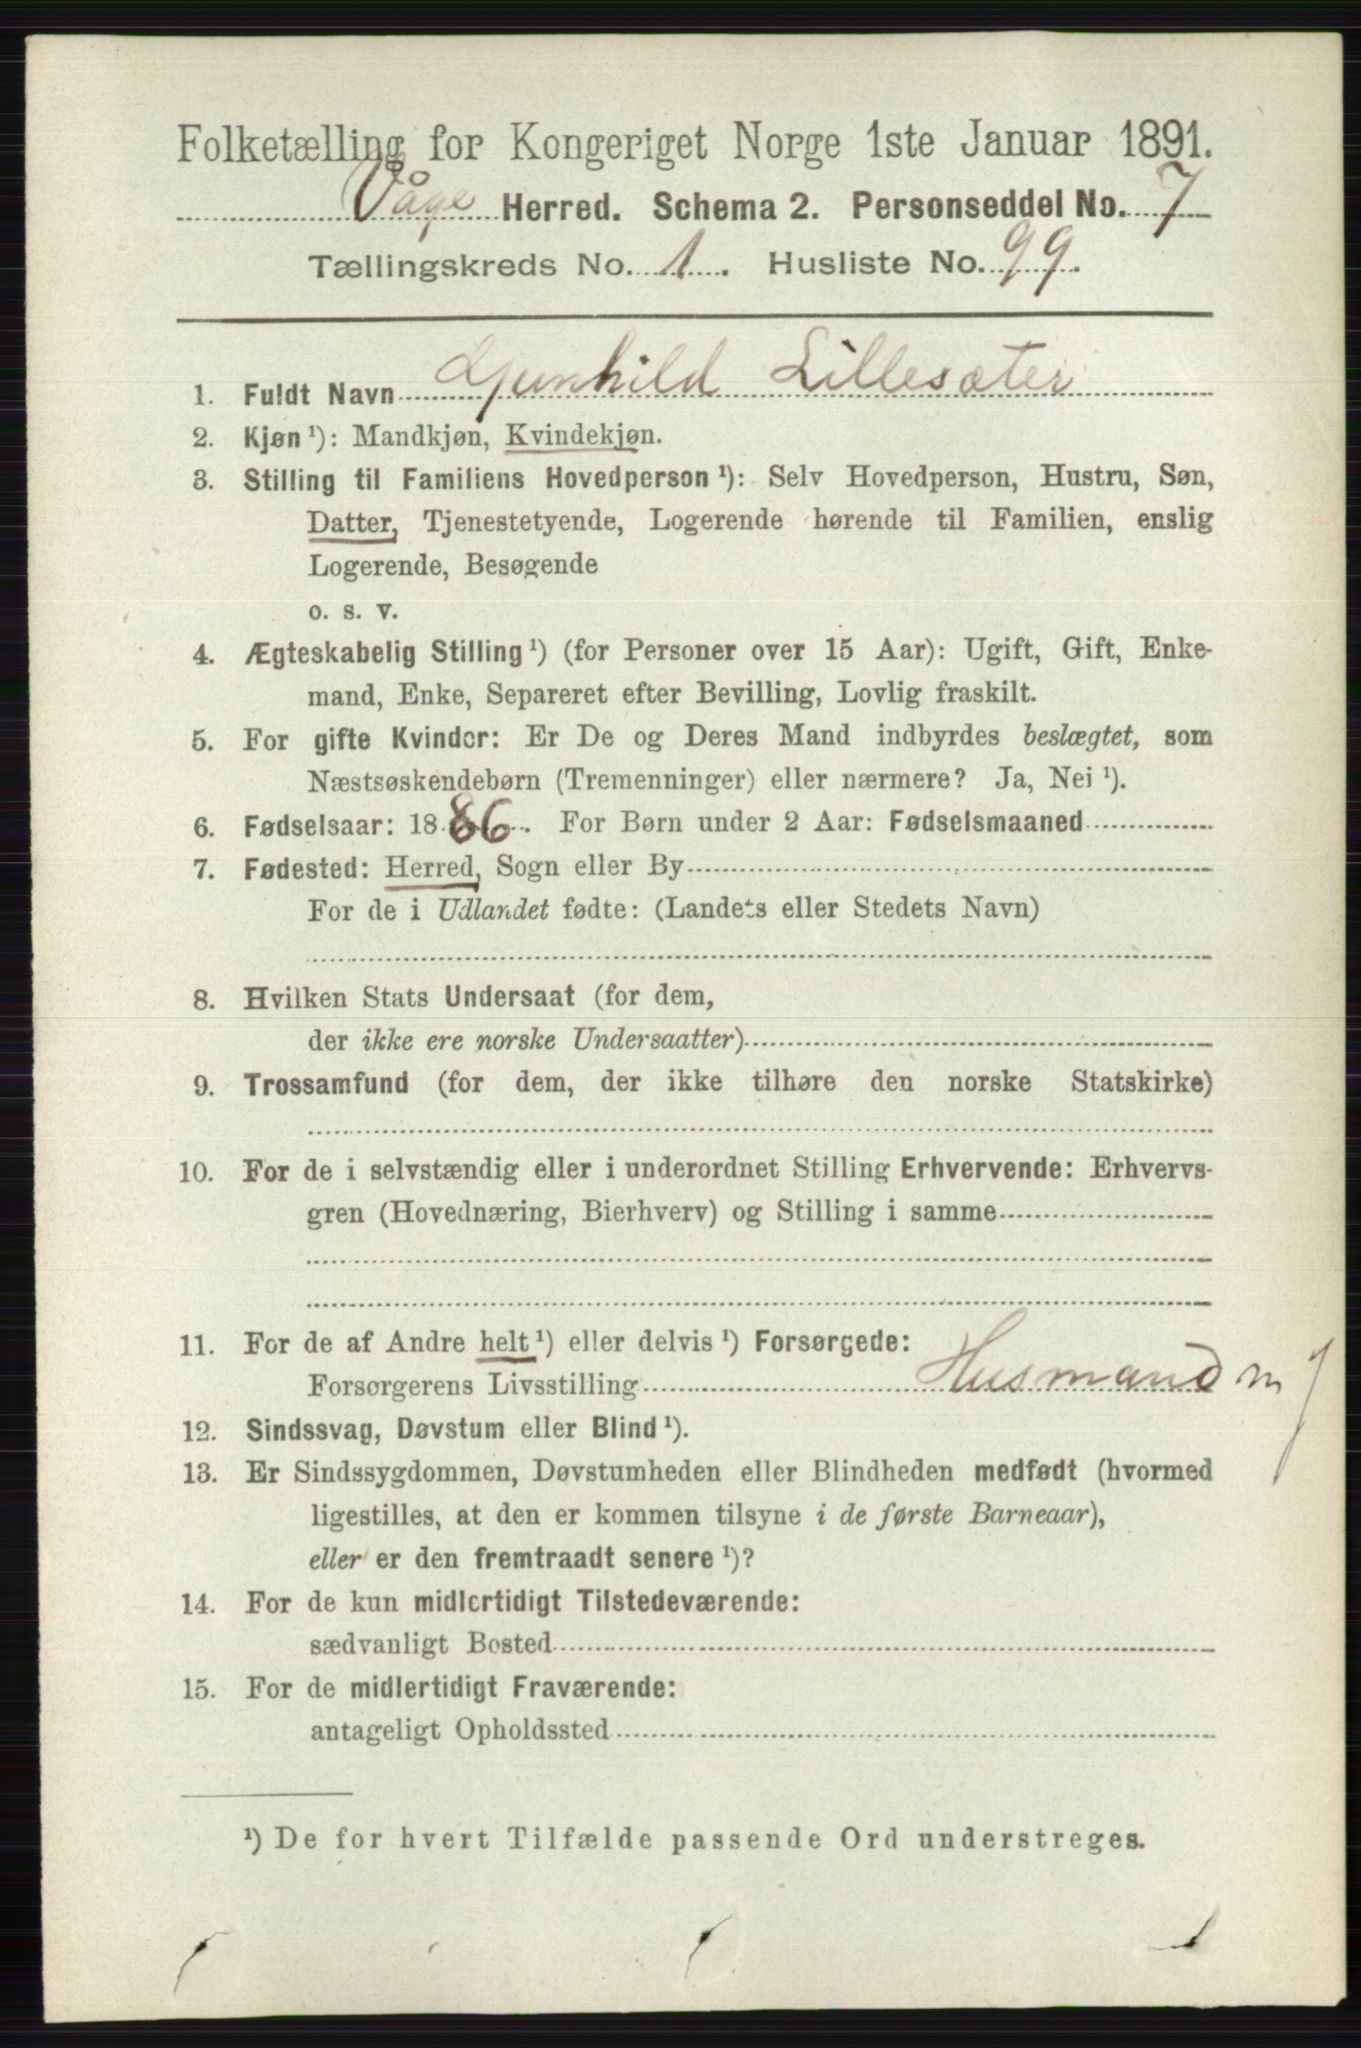 Folketælling for Kongeriget Norge 1ste Januar 1891.
Våge Herred. Schema 2. Personseddel No. 7
Tællingskreds No. 1. Husliste No. 99.
1. Fuldt Navn Gunhild Lillesæter
2. Kjøn ¹): Mandkjøn, Kvindekjøn.
3. Stilling til Familiens Hovedperson ¹): Selv Hovedperson, Hustru, Søn,
Datter, Tjenestetyende, Logerende hørende til Familien, enslig
Logerende, Besøgende
o. s. v.
4. Ægteskabelig Stilling ¹) (for Personer over 15 Aar): Ugift, Gift, Enke-
mand, Enke, Separeret efter Bevilling, Lovlig fraskilt.
5. For gifte Kvinder: Er De og Deres Mand indbyrdes beslægtet, som
Næstsøskendebørn (Tremenninger) eller nærmere? Ja, Nei ¹).
6. Fødselsaar: 1886. For Børn under 2 Aar: Fødselsmaaned
7. Fødested: Herred, Sogn eller By
For de i Udlandet fødte: (Landets eller Stedets Navn)
8. Hvilken Stats Undersaat (for dem,
der ikke ere norske Undersaatter)
9. Trossamfund (for dem, der ikke tilhøre den norske Statskirke)
10. For de i selvstændig eller i underordnet Stilling Erhvervende: Erhvervs-
gren (Hovednæring, Bierhverv) og Stilling i samme
11. For de af Andre helt ¹) eller delvis ¹) Forsørgede:
Forsørgerens Livsstilling Husmand m J
12. Sindssvag, Døvstum eller Blind ¹).
13. Er Sindssygdommen, Døvstumheden eller Blindheden medfødt (hvormed
ligestilles, at den er kommen tilsyne i de første Barneaar),
eller er den fremtraadt senere ¹)?
14. For de kun midlertidigt Tilstedeværende:
sædvanligt Bosted
15. For de midlertidigt Fraværende:
antageligt Opholdssted
¹) De for hvert Tilfælde passende Ord understreges.